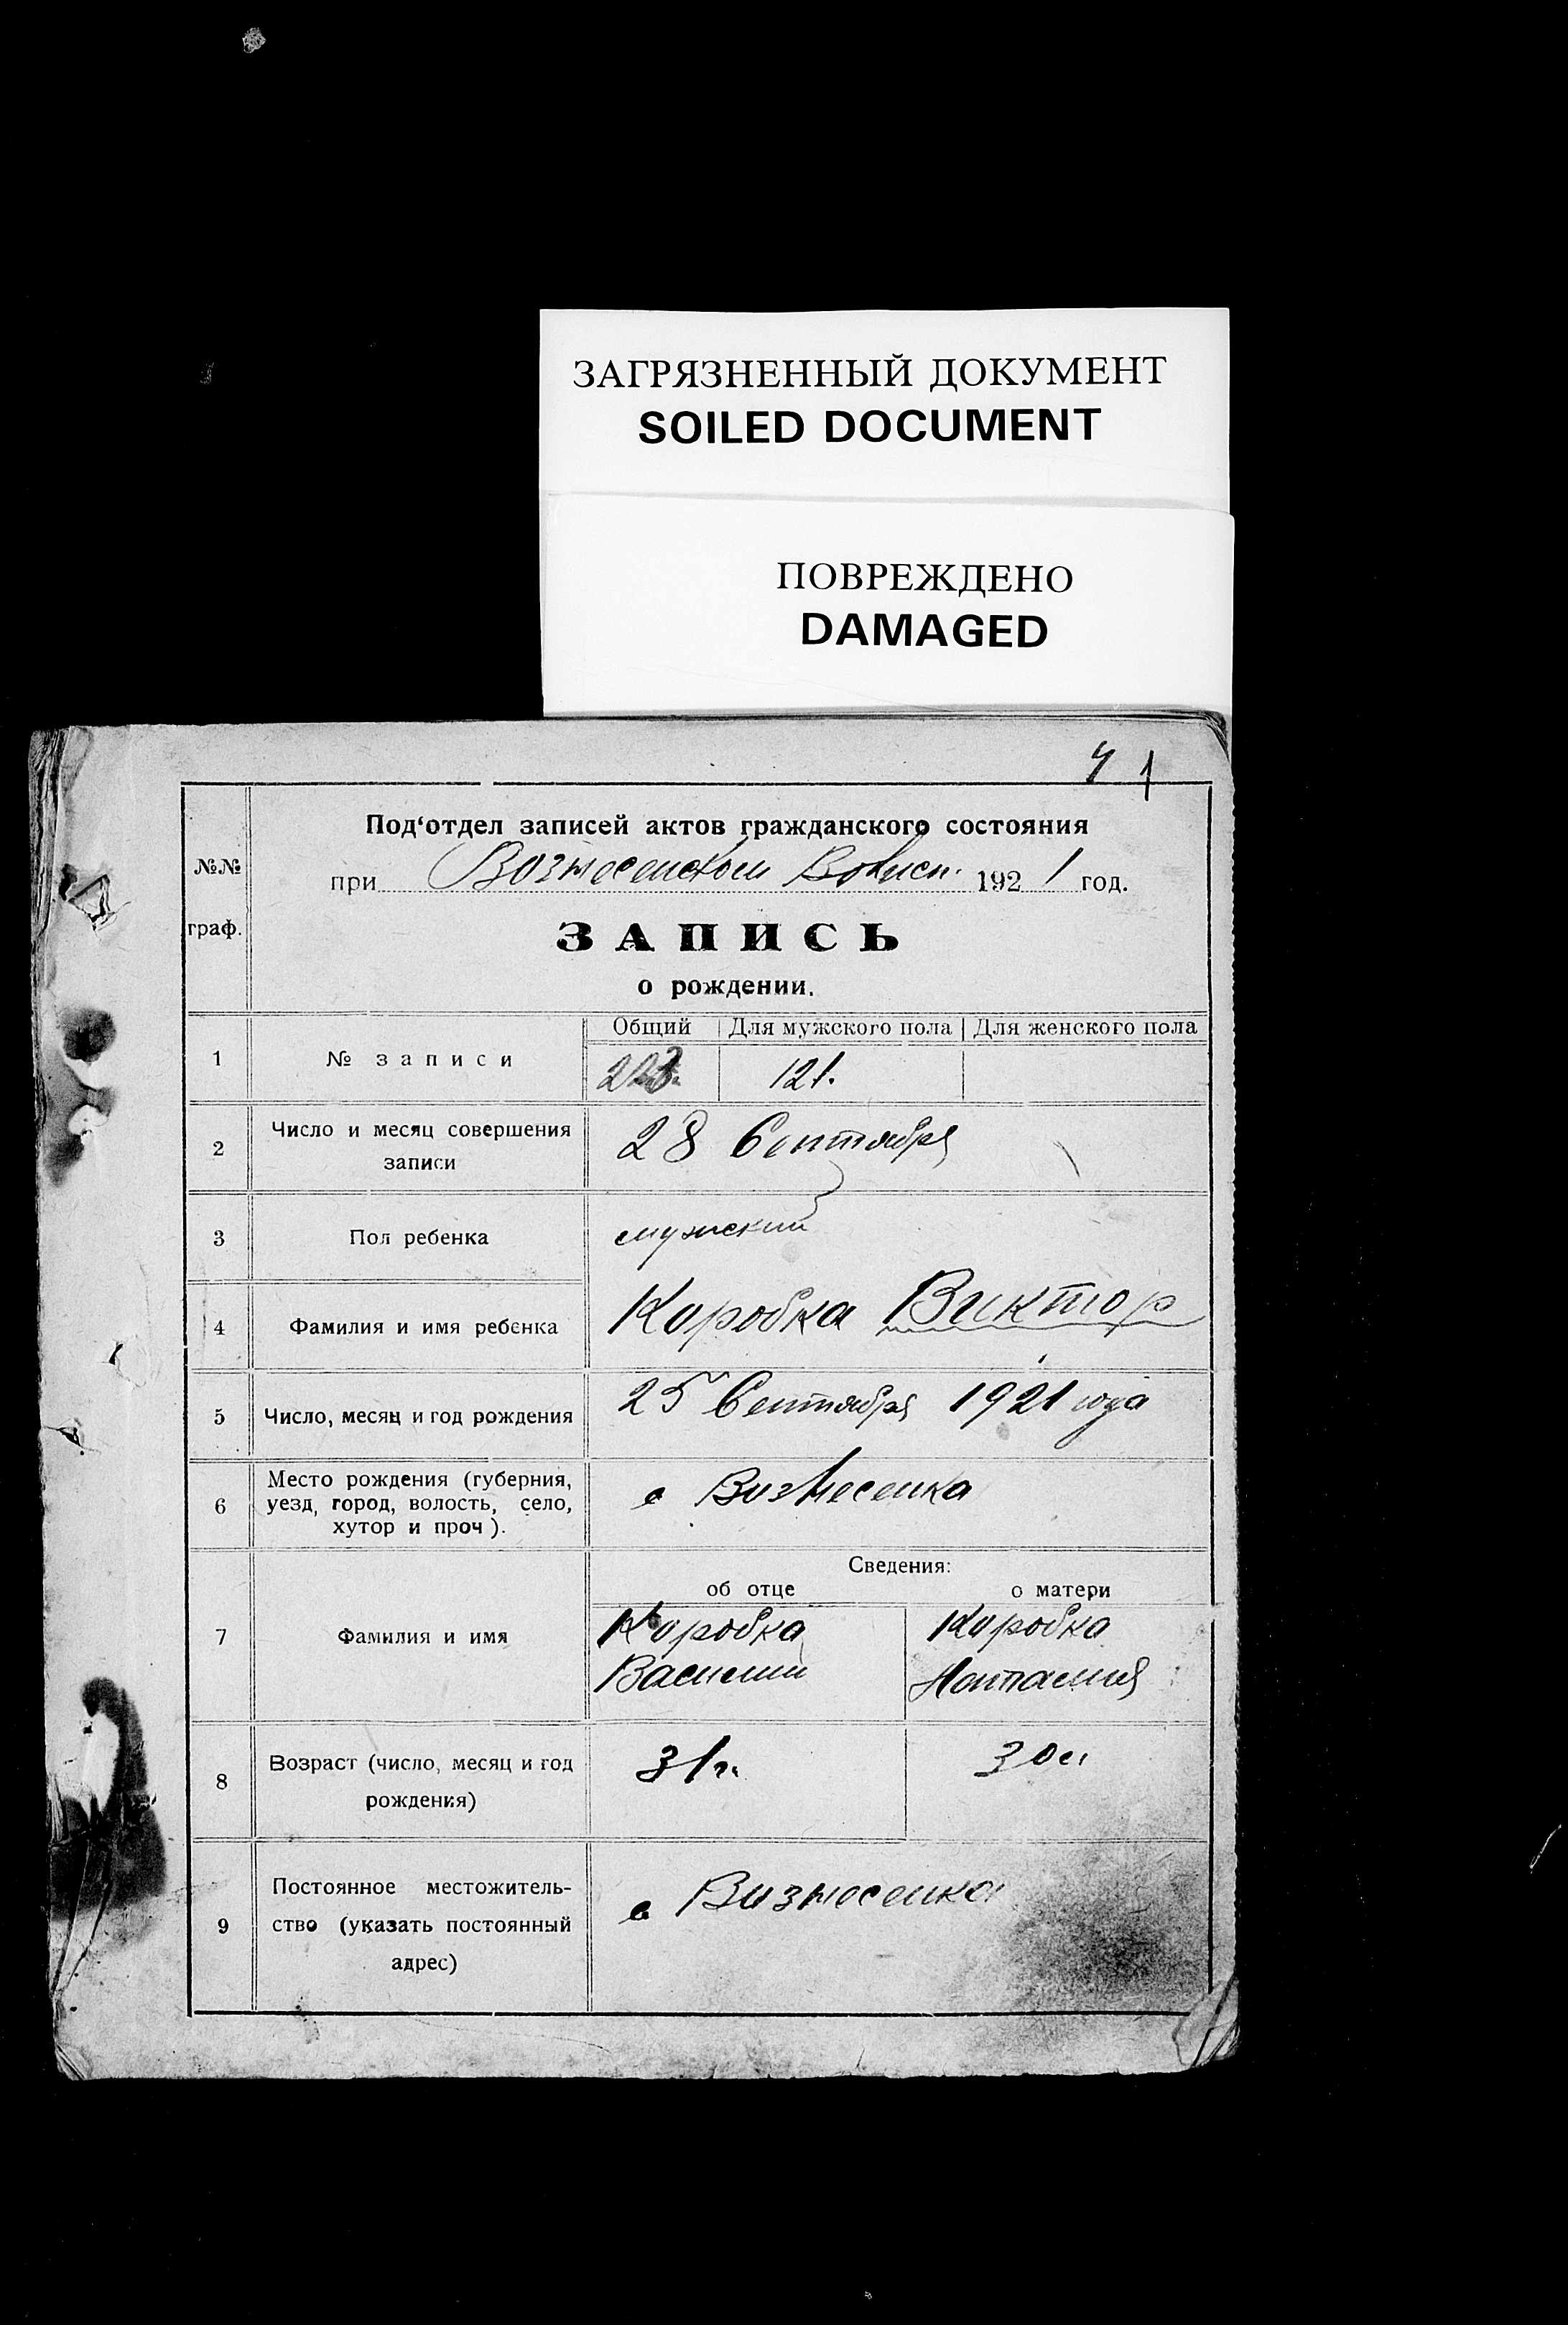 ЗАГРЯЗНЕННЫЙ ДОКУМЕНТ
SOILED DOCUMENT
ПОВРЕЖДЕНО
DAMAGED
1
Под‘отдел записей актов гражданского состояния
№№ граф.
при Вознесенском Волисп. 1921 год.
ЗАПИСЬ
о рождении.
Общий Для мужского пола Для женского пола
1 № записи 121.
2 Число и месяц совершения
записи
28 Сентября
3 Пол ребенка мужский
4 Фамилия и имя ребенка Коробка Виктор
5 Число, месяц и год рождения 25 Сентября 1921 года
6 Место рождения (губерния,
уезд, город, волость, село,
хутор и проч).
с Вознесенка
Сведения:
об отце о матери
7 Фамилия и имя
Коробка Коробка
Василий Наталия
8 Возраст (число, месяц и год
рождения)
31 г. 30 л
9 Постоянное местожитель-
ство (указать постоянный
адрес)
с Вознесенка